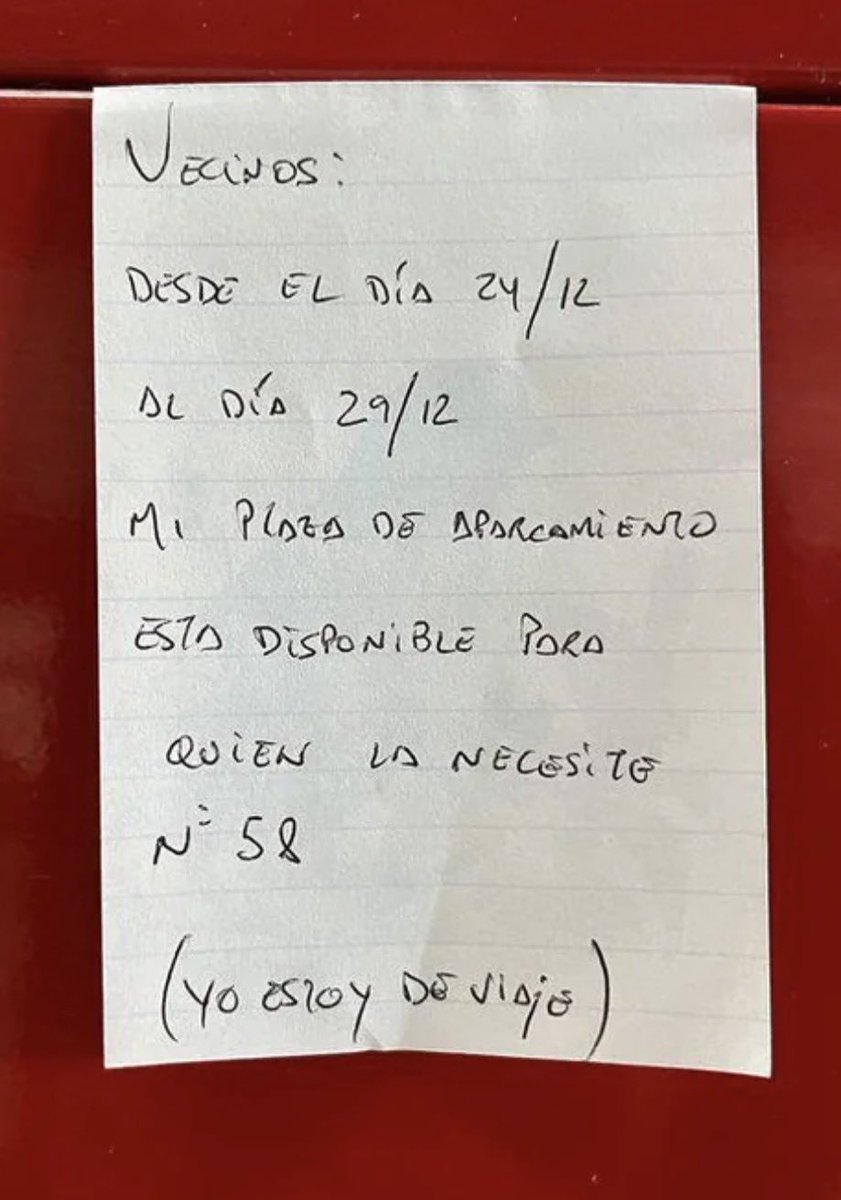 VECINOS:
DESDE EL DÍA 24/12
AL DÍA 29/12
MI PLAZA DE APARCAMIENTO
ESTA DISPONIBLE PARA
QUIEN LA NECESITE
Nº 58
(YO ESTOY DE VIAJE)